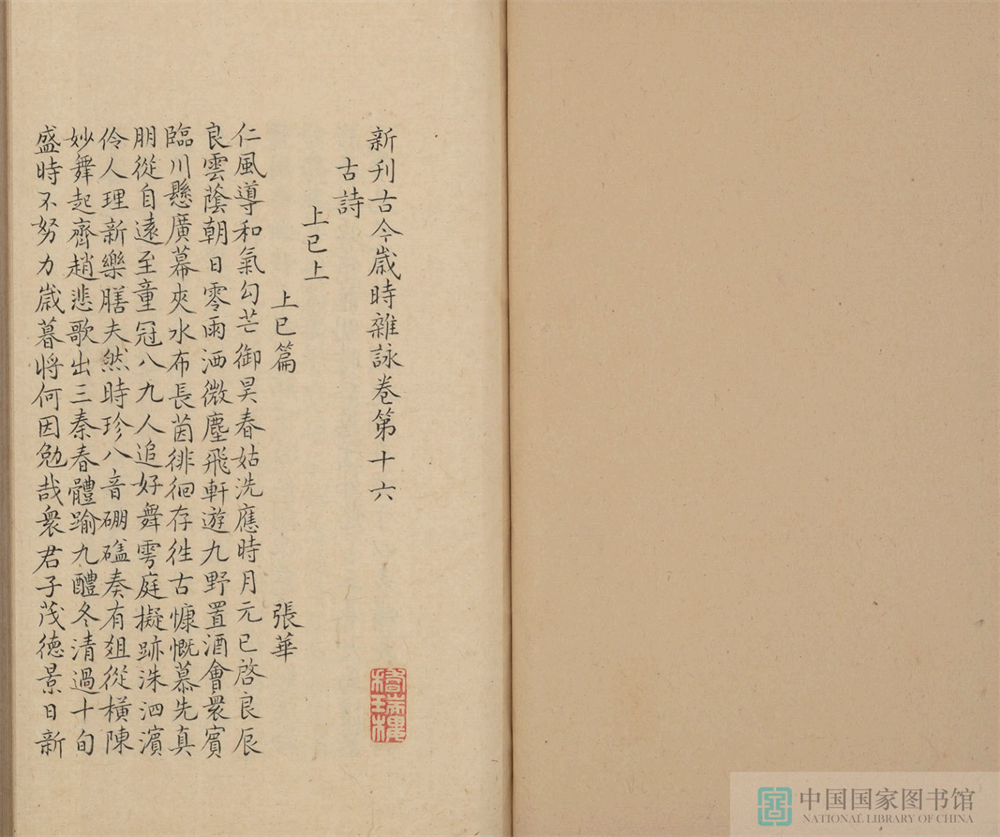 新刊古今嵗時雜詠卷第十六
古詩
上巳上
上巳篇 張華
仁風導和氣勾芒御昊春姑洗應時月元巳啓良辰
良雲蔭朝日零雨洒微塵飛軒遊九野置酒會衆賓
臨川懸廣幕夾水布長茵徘徊存往古慷慨慕先真
朋從自遠至童冠八九人追好舞雩庭擬跡洙泗濱
伶人理新樂膳夫然時珍八音硼磕奏有俎從橫陳
妙舞起齊趙悲歌出三秦春體踰九醴冬清過十旬
盛時不努力嵗暮將何因勉哉衆君子茂德景日新
中国国家图书馆
NATIONAL LIBRARY OF CHINA